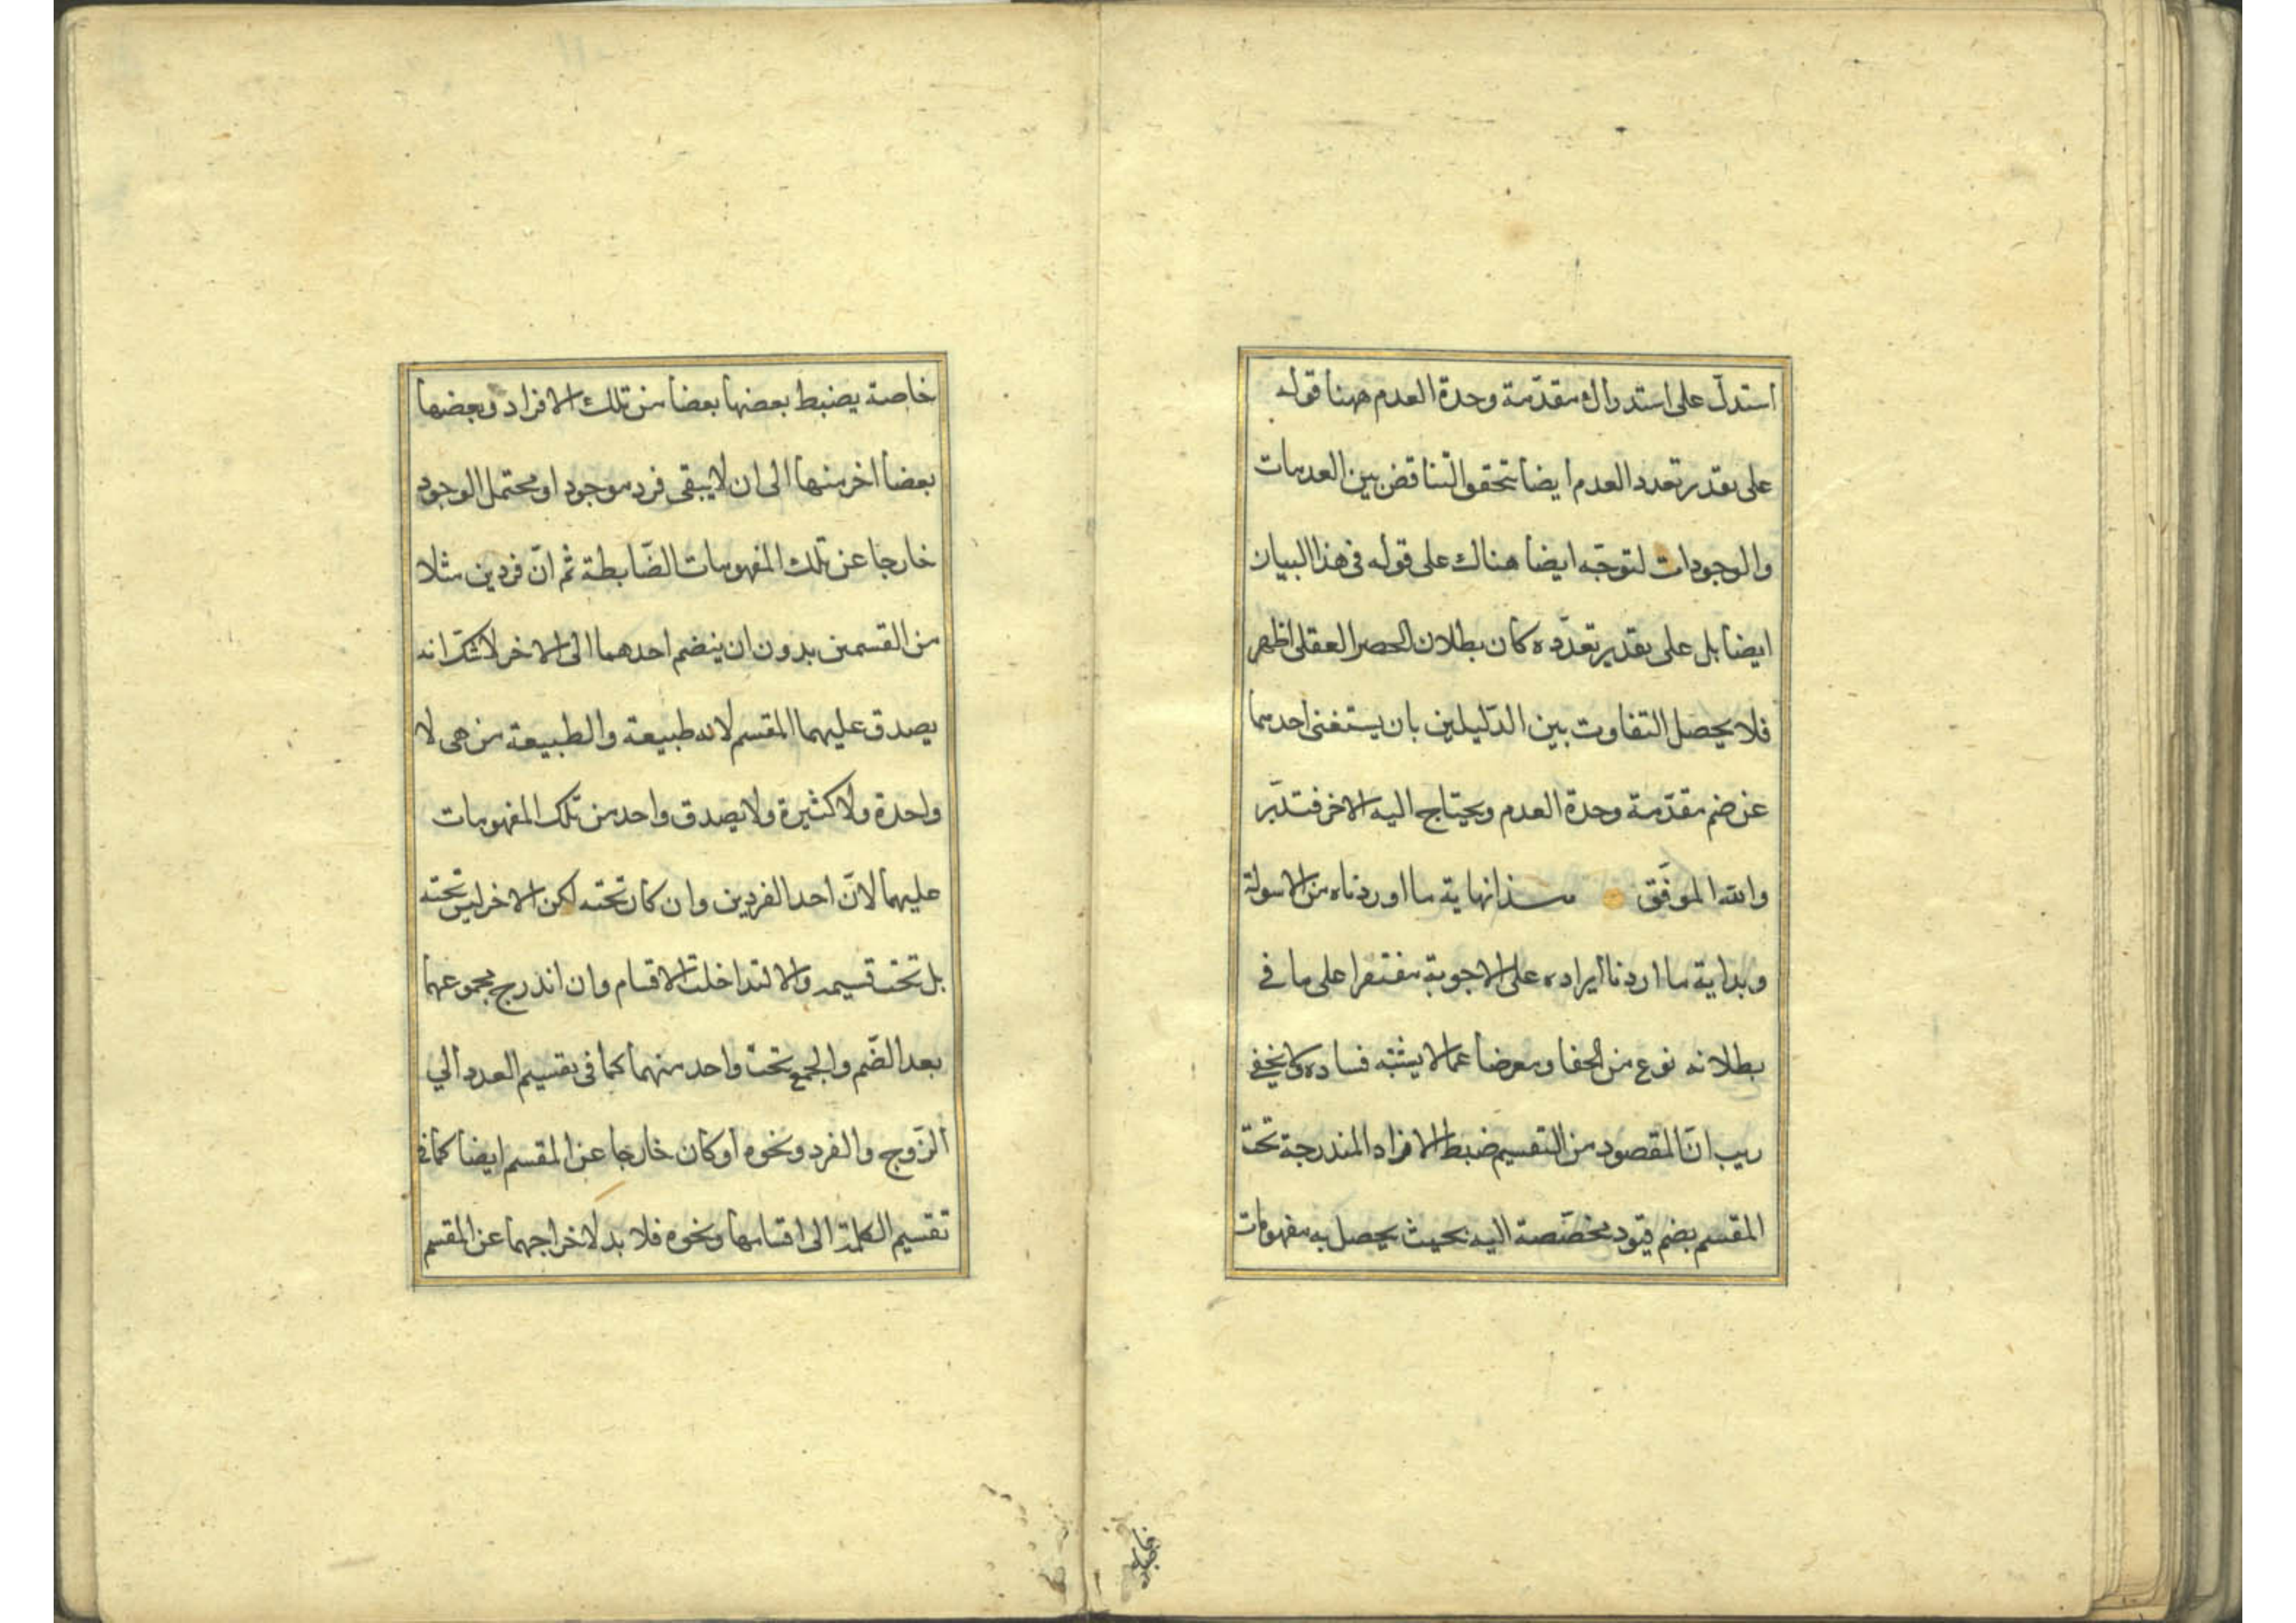 استدلّ على استدراك مقدّمة وحدة العدم ههنا قوله
على تقدير تعدد العدم ايضا يتحقق التناقض بين العدمات
والوجودات لتوجّه ايضا هناك على قوله فى هذا البيان
ايضا بل على تقدير تعدّده كان بطلان الحصر العقلى اظهر
فلا يحصل التفاوت بين الدّليلين بان يستغنى احدهما
عن ضم مقدّمة وحدة العدم ويحتاج اليه الاخر فتدبّر
والله الموفّق هذا نهاية ما اوردناه من الاسولة
وبداية ما اردنا ايراده على الاجوبة مقتصرا على ما فى
بطلانه نوع من الخفا ومعرضا عما لا يشتبه فساده ولا يخفى
ريب انّ المقصود من التقسيم ضبط الافراد المندرجة تحت
المقسم بضم قيود مخصّصة اليه بحيث يحصل به مفهومات
خاصة يضبط بعضها بعضا من تلك الافراد وبعضها
بعضا اخر منها الى ان لا يبقى فرد موجود او محتمل الوجود
خارجا عن تلك المفهومات الضّابطة ثم انّ فردين مثلا
من القسمين بدون ان ينضم احدهما الى الاخر لا شكّ انه
يصدق عليهما المقسم لانه طبيعة والطبيعة من هى لا
واحدة ولا كثيرة ولا يصدق واحد من تلك المفهومات
عليهما لانّ احد الفردين وان كان تحته لكن الاخر ليس تحته
بل تحت قسيمه والا لتداخلت الاقسام وان اندرج مجموعهما
بعد الضّم والجمع تحت واحد منهما كما فى تقسيم العدد الي
الزّوج والفرد ونحوه او كان خارجا عن المقسم ايضا كما فى
تقسيم الكلمة الى اقسامها ونحوه فلا بد لاخراجهما عن المقسم